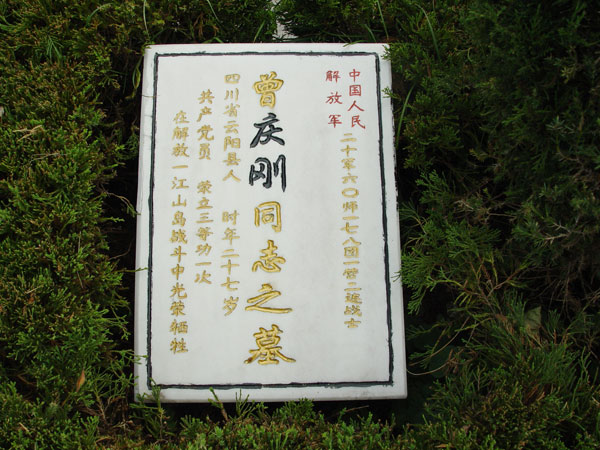 中国人民
解放军
二十军六〇师一七八团一营二连战士
曾庆刚同志之墓
四川省云阳县人 时年二十七岁
共产党员 荣立三等功一次
在解放一江山岛战斗中光荣牺牲